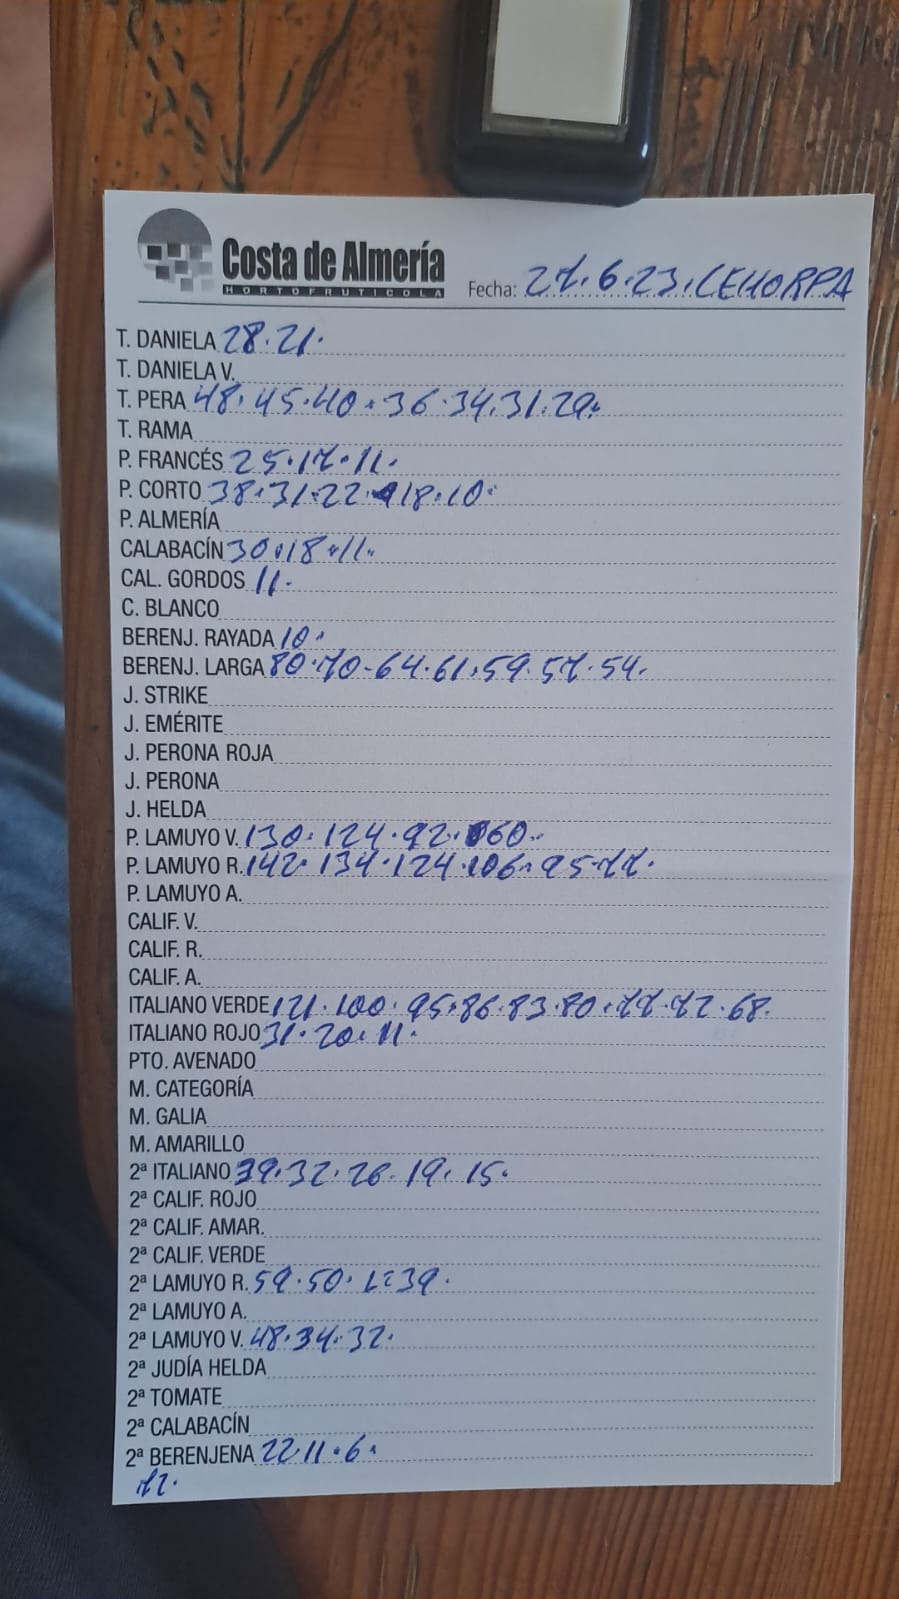 Costa de Almería
HORTOFRUTICOLA
Fecha: 27.6.23. CEHORPA
T. DANIELA 28.21.
T. DANIELA V.
T. PERA 48.45.40.36.34.31.29.
T. RAMA
P. FRANCÉS 25.17.11.
P. CORTO 38.31.22.18.10.
P. ALMERÍA
CALABACÍN 30.18.11.
CAL. GORDOS 11.
C. BLANCO
BERENJ. RAYADA 10.
BERENJ. LARGA 80.70-64.61.59.57.54.
J. STRIKE
J. EMÉRITE
J. PERONA ROJA
J. PERONA
J. HELDA
P. LAMUYO V. 130.124.92.60.
P. LAMUYO R. 142.134.124.106.95.77.
P. LAMUYO A.
CALIF. V.
CALIF. R.
CALIF. A.
ITALIANO VERDE 121.100.95.86.83.80.77.72.68.
ITALIANO ROJO 31.20.11.
PTO. AVENADO
M. CATEGORÍA
M. GALIA
M. AMARILLO
2ª ITALIANO 39.32.26.19.15.
2ª CALIF. ROJO
2ª CALIF. AMAR.
2ª CALIF. VERDE
2ª LAMUYO R. 59.50. 39.
2ª LAMUYO A.
2ª LAMUYO V. 48.34.32.
2ª JUDÍA HELDA
2ª TOMATE
2ª CALABACÍN
2ª BERENJENA 22.11.6.
72.